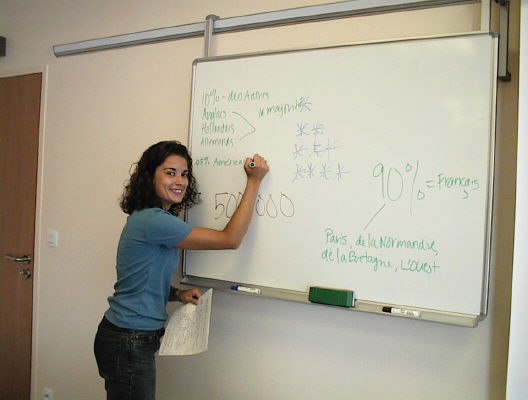 10% - des Autres
Anglais
Hollandais
Allemands
la majorité
.05% Américai
500 000
90% = Français
Paris, de la Normandie,
de la Bretagne, L'ouest